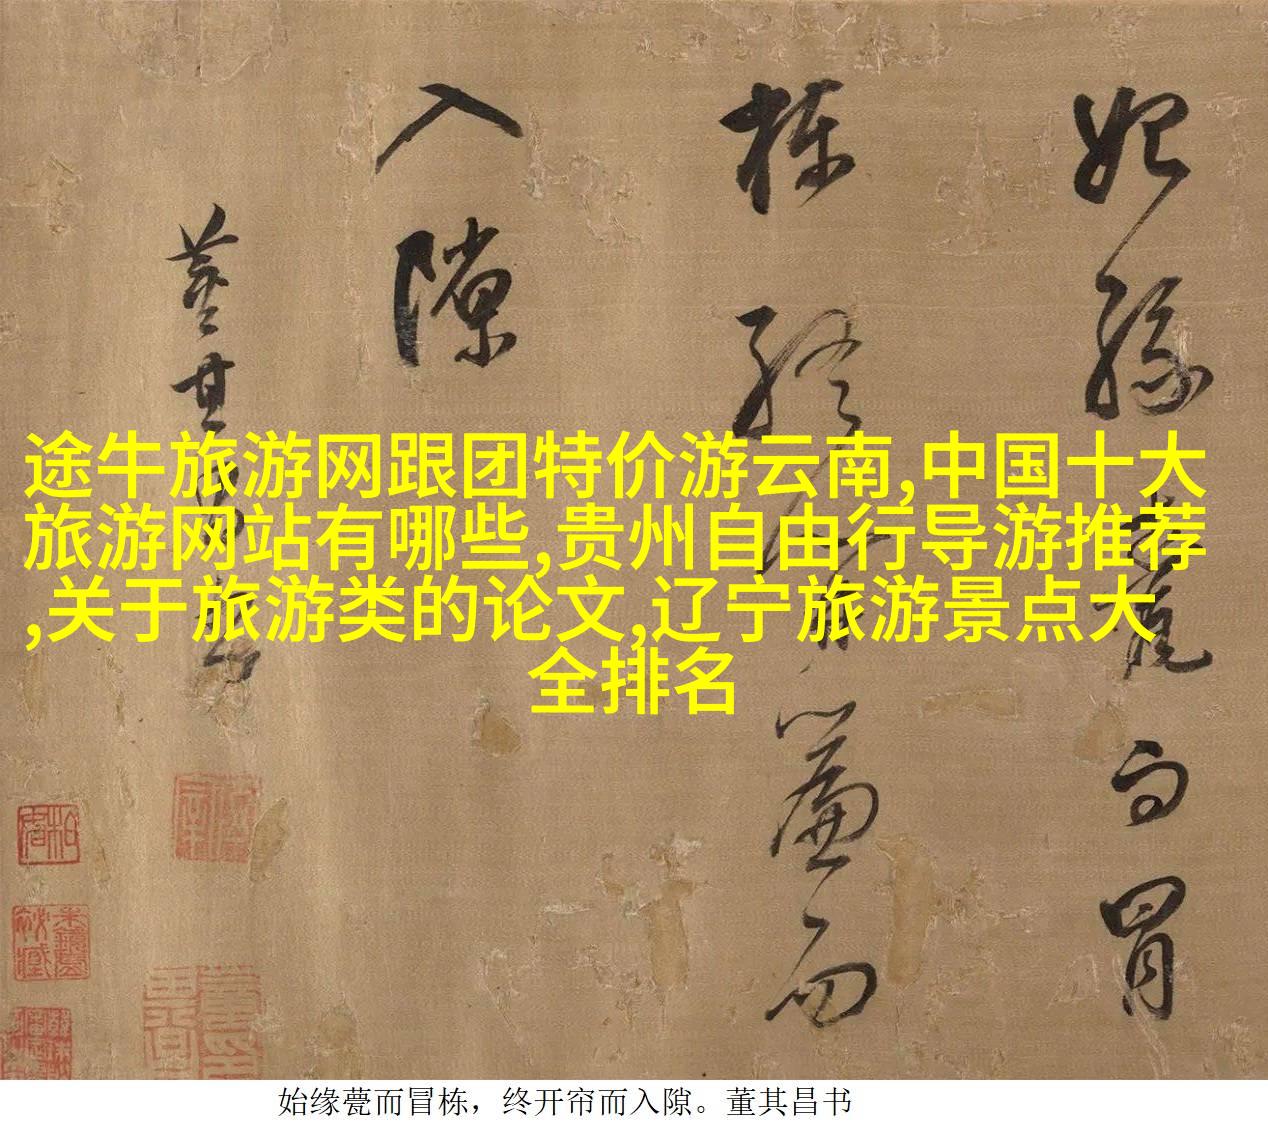 始缘甍而冒
栋终开簾而
入隙
董其昌书
途牛旅游网跟团特价游云南,中国十大
旅游网站有哪些,贵州自由行导游推荐
,关于旅游类的论文,辽宁旅游景点大
全排名
始缘甍而冒栋，终开帘而入隙。董其昌书